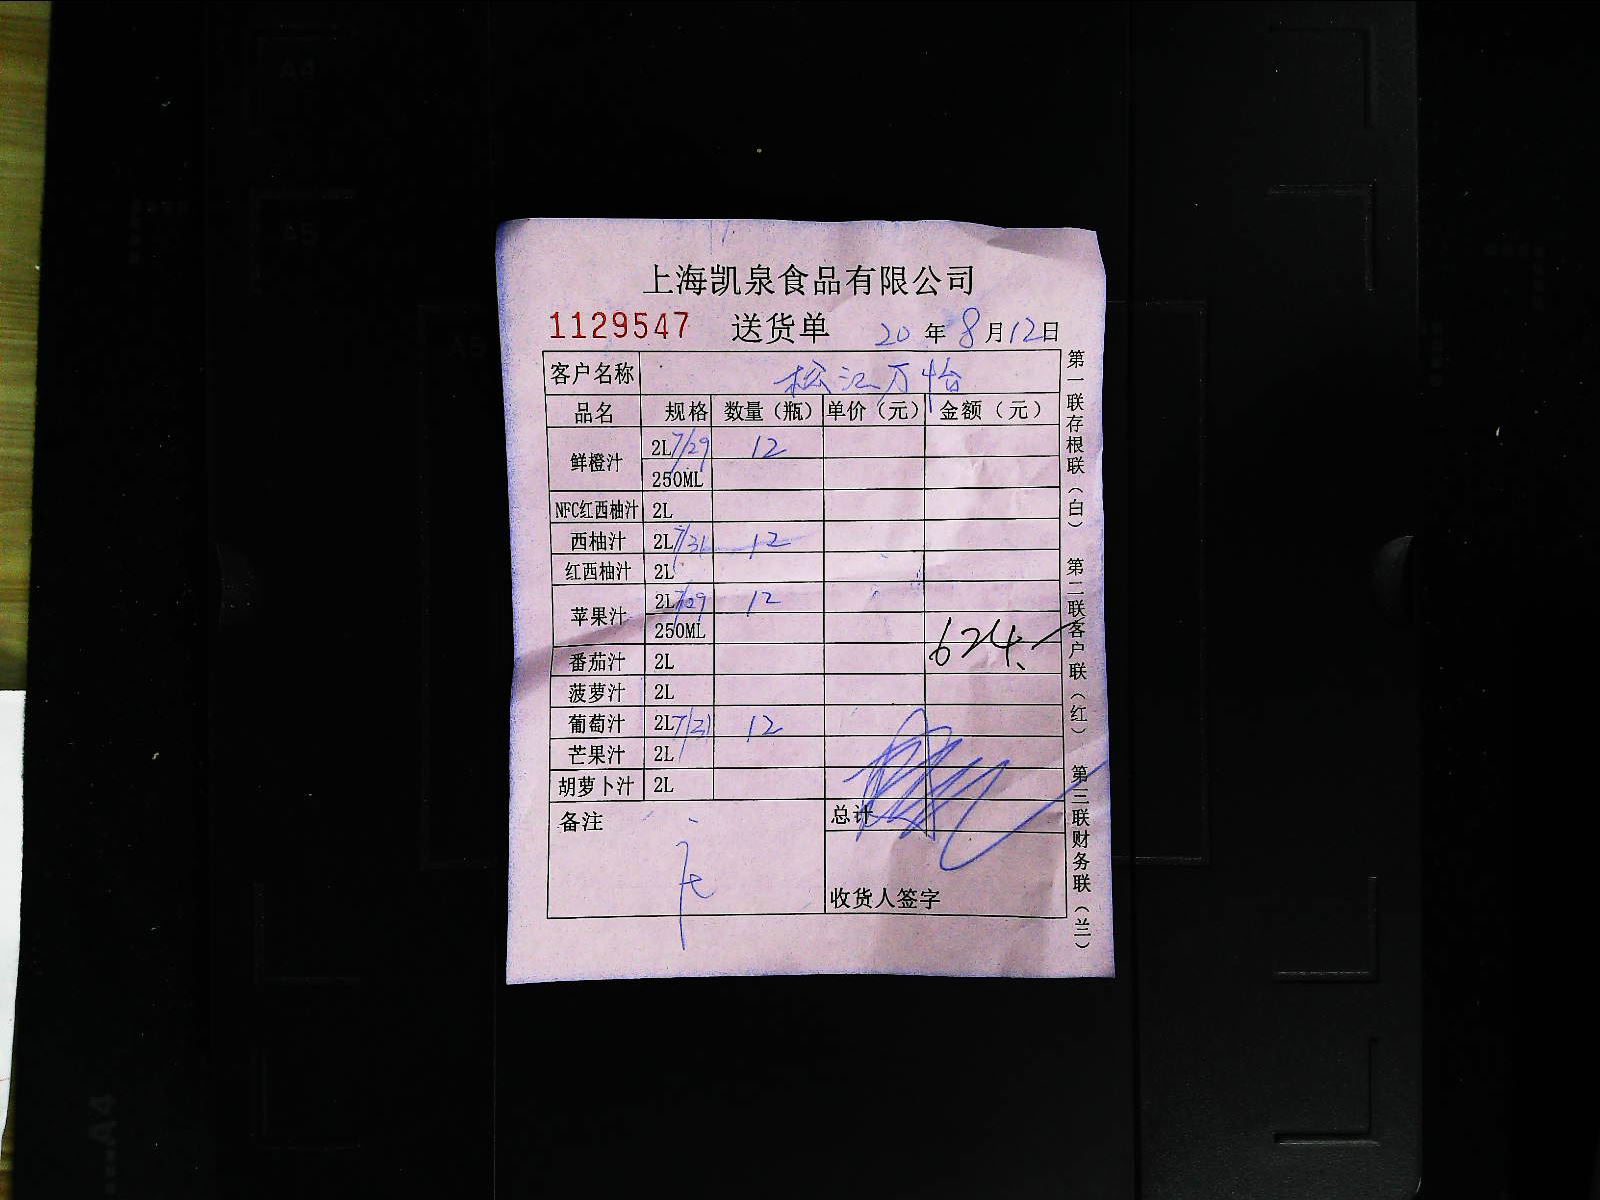 上海凯泉食品有限公司
1129547 送货单 20年8月12日
客户名称 松江万怡
品名 规格 数量（瓶） 单价（元） 金额（元）
鲜橙汁 2L 7/29 12
250ML
NFC红西柚汁 2L
西柚汁 2L 7/31 12
红西柚汁 2L
苹果汁 2L 7/29 12
250ML
624.
番茄汁 2L
菠萝汁 2L
葡萄汁 2L 7/31 12
芒果汁 2L
胡萝卜汁 2L
备注 总计
收货人签字
第一联存根联（白） 第二联客户联（红） 第三联财务联（兰）
A4